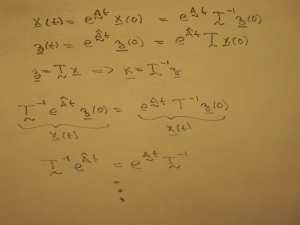 x(t) = e^{At} x(0) = e^{At} T^{-1} z(0)
z(t) = e^{Ât} z(0) = e^{Ât} T x(0)
z = T x => x = T^{-1} z
T^{-1} e^{Ât} z(0) = e^{At} T^{-1} z(0)
x(t) x(t)
T^{-1} e^{Ât} = e^{At} T^{-1}